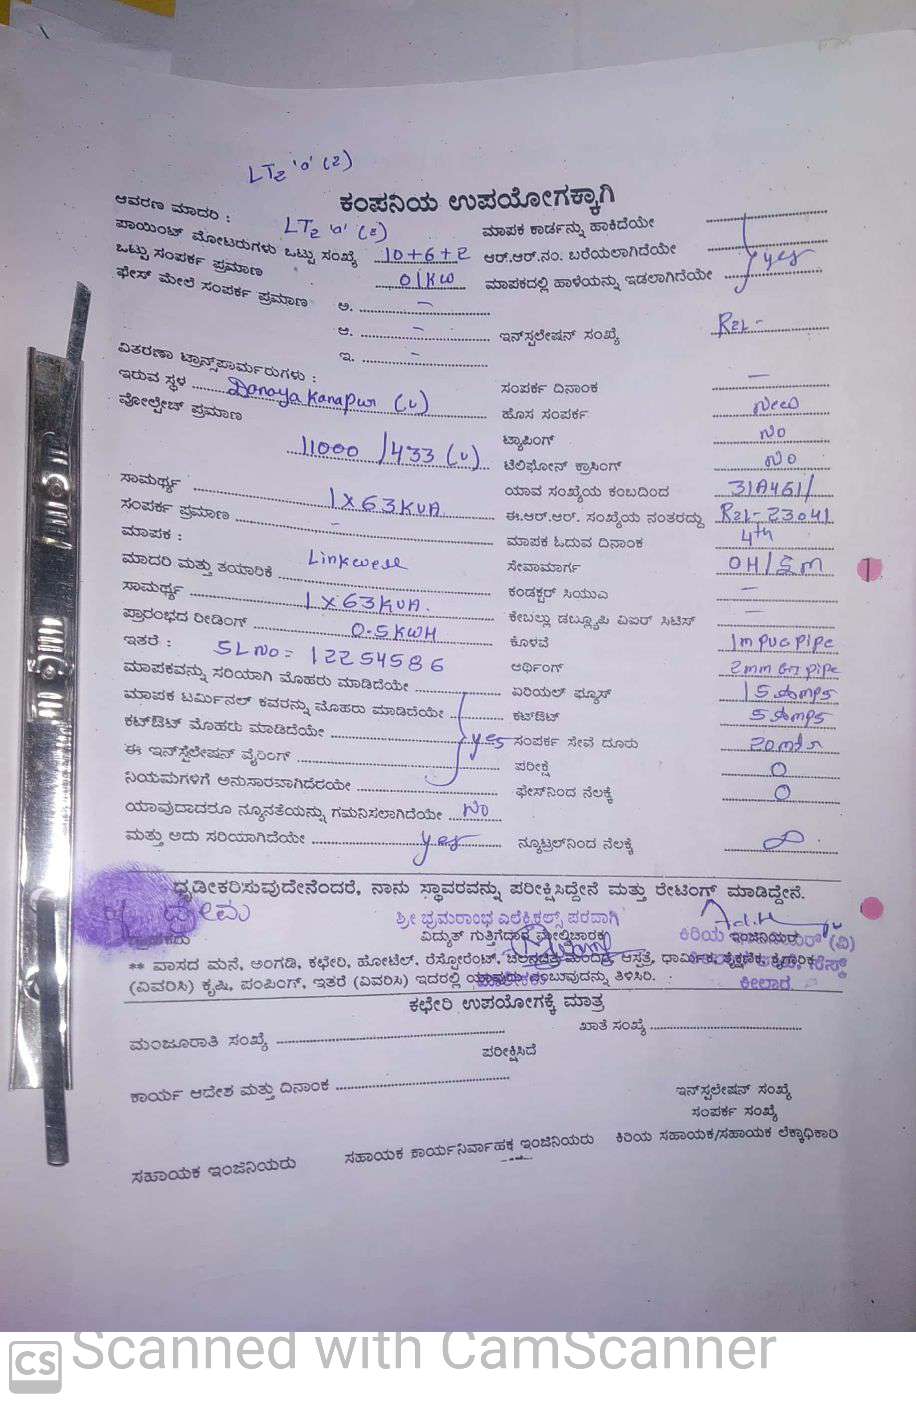 LT2 'a' (2)
ಕಂಪನಿಯ ಉಪಯೋಗಕ್ಕಾಗಿ
ಆವರಣ ಮಾದರಿ : LT2 'a' (2) ಮಾಪಕ ಕಾರ್ಡನ್ನು ಹಾಕಿದೆಯೇ
ಪಾಯಿಂಟ್ ಮೋಟರುಗಳು ಒಟ್ಟು ಸಂಖ್ಯೆ 10+6+2 ಆರ್.ಆರ್.ನಂ. ಬರೆಯಲಾಗಿದೆಯೇ yes
ಒಟ್ಟು ಸಂಪರ್ಕ ಪ್ರಮಾಣ 01KW ಮಾಪಕದಲ್ಲಿ ಹಾಳೆಯನ್ನು ಇಡಲಾಗಿದೆಯೇ
ಫೇಸ್ ಮೇಲೆ ಸಂಪರ್ಕ ಪ್ರಮಾಣ ಅ. -
ಆ. - ಇನ್‌ಸ್ಟಲೇಷನ್ ಸಂಖ್ಯೆ R2L -
ಇ. -
ವಿತರಣಾ ಟ್ರಾನ್ಸ್‌ಫಾರ್ಮರುಗಳು :
ಇರುವ ಸ್ಥಳ Danayakanapur (u) ಸಂಪರ್ಕ ದಿನಾಂಕ —
ವೋಲ್ಟೇಜ್ ಪ್ರಮಾಣ ಹೊಸ ಸಂಪರ್ಕ New
11000/433 (v) ಟ್ಯಾಪಿಂಗ್ No
ಟೆಲಿಫೋನ್ ಕ್ರಾಸಿಂಗ್ No
ಸಾಮರ್ಥ್ಯ 1X63KVA ಯಾವ ಸಂಖ್ಯೆಯ ಕಂಬದಿಂದ 31A461/
ಸಂಪರ್ಕ ಪ್ರಮಾಣ - ಈ.ಆರ್.ಆರ್. ಸಂಖ್ಯೆಯ ನಂತರದ್ದು R2L-23041
ಮಾಪಕ : ಮಾಪಕ ಓದುವ ದಿನಾಂಕ 4th
ಮಾದರಿ ಮತ್ತು ತಯಾರಿಕೆ Linkwell ಸೇವಾಮಾರ್ಗ OH/
ಸಾಮರ್ಥ್ಯ 1X63KVA. ಕಂಡಕ್ಟರ್ ಸಿಯುಎ —
ಪ್ರಾರಂಭದ ರೀಡಿಂಗ್ 0.5KWH ಕೇಬಲ್ಲು ಡಬ್ಲ್ಯೂಪಿ ವಿಐರ್ ಸಿಟಿಸ್ —
ಇತರೆ : SL No = 12254586 ಕೊಳವೆ 1m PVC Pipe
ಮಾಪಕವನ್ನು ಸರಿಯಾಗಿ ಮೊಹರು ಮಾಡಿದೆಯೇ ಅರ್ಥಿಂಗ್ 2mm GI Pipe
ಮಾಪಕ ಟರ್ಮಿನಲ್ ಕವರನ್ನು ಮೊಹರು ಮಾಡಿದೆಯೇ ಏರಿಯಲ್ ಫ್ಯೂಸ್ 15 Amps
ಕಟ್‌ಔಟ್ ಮೊಹರು ಮಾಡಿದೆಯೇ yes ಕಟ್‌ಔಟ್ 5 Amps
ಈ ಇನ್‌ಸ್ಟಲೇಷನ್ ವೈರಿಂಗ್ ಸಂಪರ್ಕ ಸೇವೆ ದೂರು 20mts
ನಿಯಮಗಳಿಗೆ ಅನುಸಾರವಾಗಿದೆರಯೇ ಪರೀಕ್ಷೆ 0
ಯಾವುದಾದರೂ ನ್ಯೂನತೆಯನ್ನು ಗಮನಿಸಲಾಗಿದೆಯೇ No ಫೇಸ್‌ನಿಂದ ನೆಲಕ್ಕೆ 0
ಮತ್ತು ಅದು ಸರಿಯಾಗಿದೆಯೇ yes ನ್ಯೂಟ್ರಲ್‌ನಿಂದ ನೆಲಕ್ಕೆ ∞.
ಧೃಡೀಕರಿಸುವುದೇನೆಂದರೆ, ನಾನು ಸ್ಥಾವರವನ್ನು ಪರೀಕ್ಷಿಸಿದ್ದೇನೆ ಮತ್ತು ರೇಟಿಂಗ್ ಮಾಡಿದ್ದೇನೆ.
ಶ್ರೀ ಭ್ರಮರಾಂಭ ಎಲೆಕ್ಟ್ರಿಕಲ್ಸ್ ಪರವಾಗಿ
ವಿದ್ಯುತ್ ಗುತ್ತಿಗೆದಾರ ಮೇಲ್ವಿಚಾರಕ ಕಿರಿಯ ಇಂಜಿನಿಯರು (ವಿ)
** ವಾಸದ ಮನೆ, ಅಂಗಡಿ, ಕಛೇರಿ, ಹೋಟೆಲ್, ರೆಸ್ಟೋರೆಂಟ್, ಚಲನಚಿತ್ರ ಮಂದಿರ, ಆಸ್ಪತ್ರೆ, ಧಾರ್ಮಿಕ, ಶೈಕ್ಷಣಿಕ, ಕೈಗಾರಿಕ
(ವಿವರಿಸಿ) ಕೃಷಿ, ಪಂಪಿಂಗ್, ಇತರೆ (ವಿವರಿಸಿ) ಇದರಲ್ಲಿ ಯಾವುದು ಎಂಬುವುದನ್ನು ತಿಳಿಸಿರಿ. ಕೀಲಾರ.
ಕಛೇರಿ ಉಪಯೋಗಕ್ಕೆ ಮಾತ್ರ
ಮಂಜೂರಾತಿ ಸಂಖ್ಯೆ ಖಾತೆ ಸಂಖ್ಯೆ
ಪರೀಕ್ಷಿಸಿದೆ
ಕಾರ್ಯ ಆದೇಶ ಮತ್ತು ದಿನಾಂಕ
ಇನ್‌ಸ್ಟಲೇಷನ್ ಸಂಖ್ಯೆ
ಸಂಪರ್ಕ ಸಂಖ್ಯೆ
ಸಹಾಯಕ ಇಂಜಿನಿಯರು ಸಹಾಯಕ ಕಾರ್ಯನಿರ್ವಾಹಕ ಇಂಜಿನಿಯರು ಕಿರಿಯ ಸಹಾಯಕ/ಸಹಾಯಕ ಲೆಕ್ಕಾಧಿಕಾರಿ
CS Scanned with CamScanner